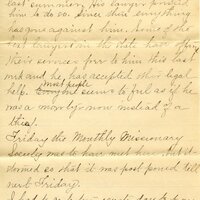 last summer. His lawyer
him to do so. Since then everything
has gone against him. Some of the
best lawyers in the state have
their services free to him this last
and he has accepted their legal
help. most people seems to feel as if he
was a martyr now instead of a
thief.
Friday the Monthly Missionary
Society was to have met here but it
stormed so that it was post poned till
next Friday.
I had to